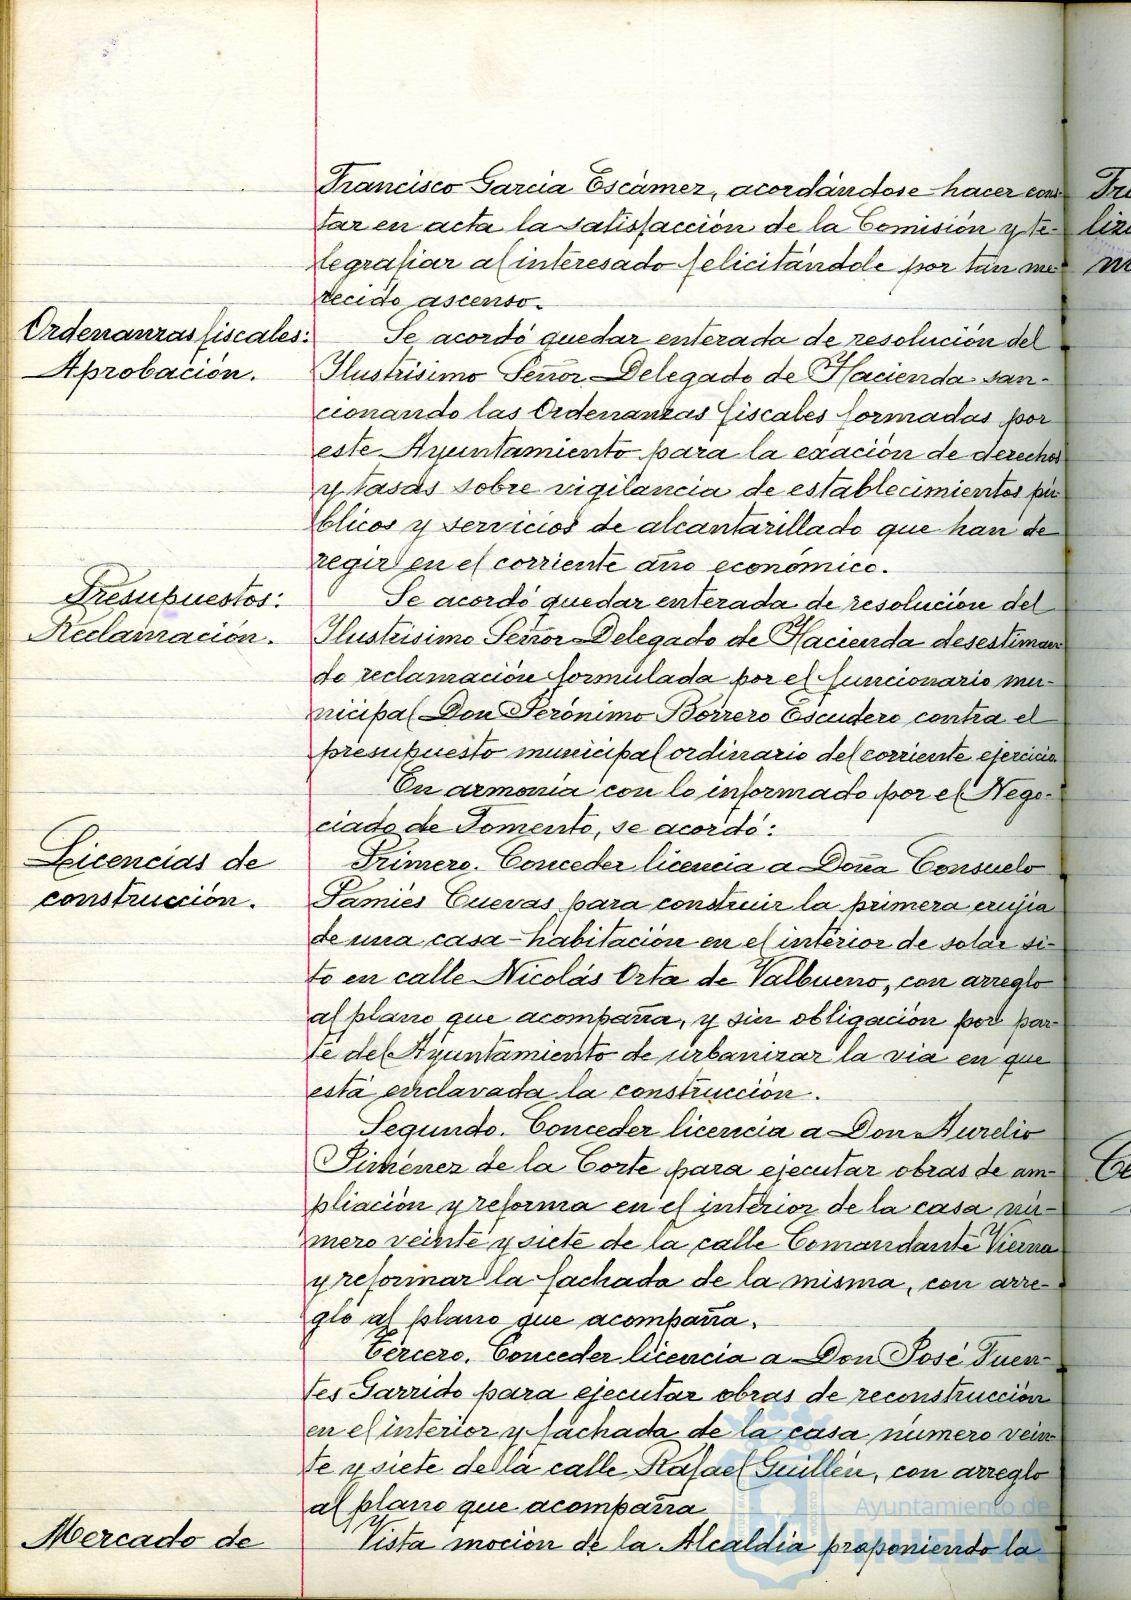 Francisco García Escámez, acordándose hacer cons-
tar en acta la satisfacción de la Comisión y te-
legrafiar al interesado felicitándole por tan me-
recido ascenso.
Ordenanzas fiscales:
Aprobación.
Se acordó quedar enterada de resolución del
Ilustrísimo Señor Delegado de Hacienda san-
cionando las Ordenanzas fiscales formadas por
este Ayuntamiento para la exación de derechos
y tasas sobre vigilancia de establecimientos pú-
blicos y servicios de alcantarillado que han de
regir en el corriente año económico.
Presupuestos:
Reclamación.
Se acordó quedar enterada de resolución del
Ilustrísimo Señor Delegado de Hacienda desestiman-
do reclamación formulada por el funcionario mu-
nicipal Don Jerónimo Borrero Escudero contra el
presupuesto municipal ordinario del corriente ejercicio.
En armonía con lo informado por el Nego-
ciado de Fomento, se acordó:
Licencias de
construcción.
Primero. Conceder licencia a Doña Consuelo
Pamiés Cuevas para construir la primera crujía
de una casa-habitación en el interior de solar si-
to en calle Nicolás Orta de Valbueno, con arreglo
al plano que acompaña, y sin obligación por par-
te del Ayuntamiento de urbanizar la vía en que
está enclavada la construcción.
Segundo. Conceder licencia a Don Aurelio
Jiménez de la Corte para ejecutar obras de am-
pliación y reforma en el interior de la casa nú-
mero veinte y siete de la calle Comandante Vierna
y reformar la fachada de la misma, con arre-
glo al plano que acompaña.
Tercero. Conceder licencia a Don José Fuen-
tes Garrido para ejecutar obras de reconstrucción
en el interior y fachada de la casa número vein-
te y siete de la calle Rafael Guillén, con arreglo
al plano que acompaña
Mercado de
Vista moción de la Alcaldía proponiendo la
Ayuntamiento de
HUELVA